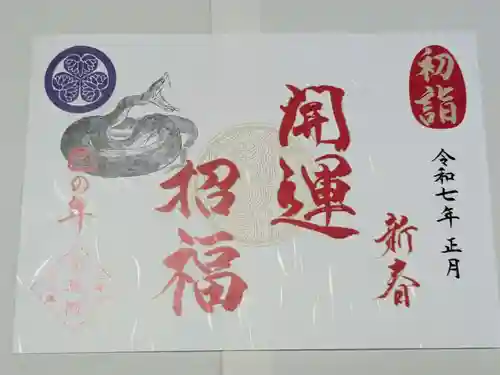 初詣
令和七年 正月
新春
開運
招福
の年